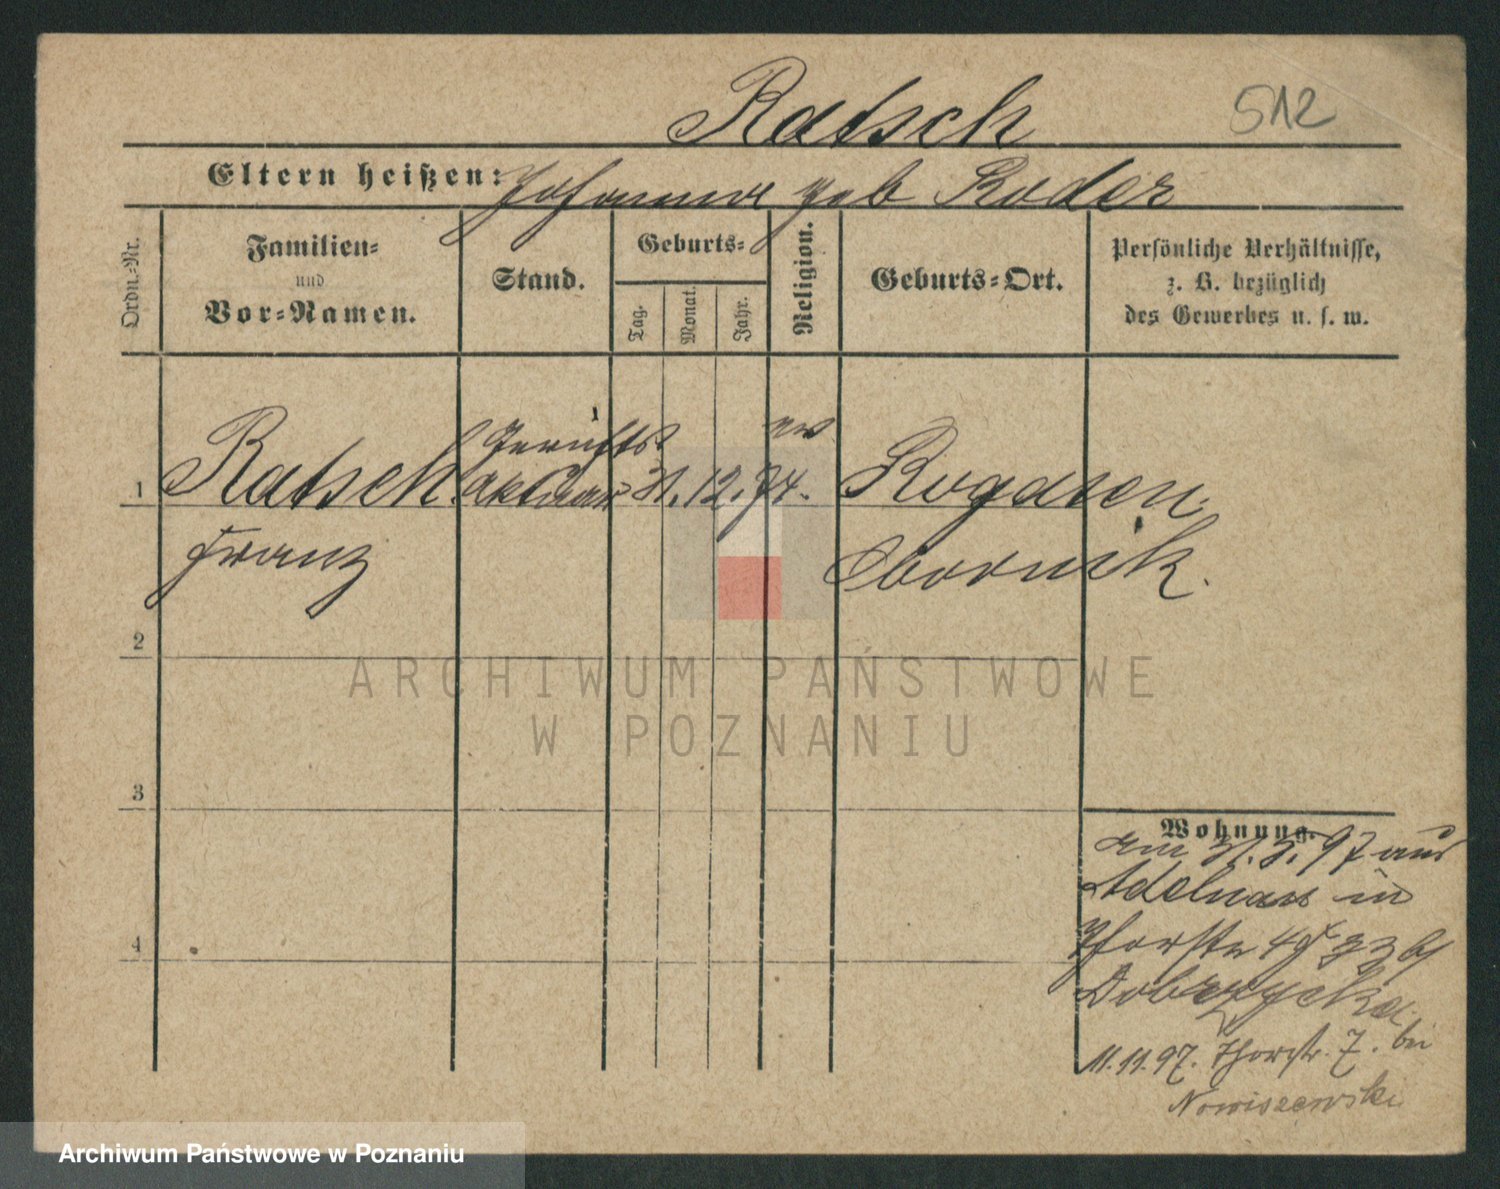 512
Ratsch
Eltern heißen: Johanna geb Roder
Ordn.-Nr.
Familien-
und
Vor-Namen.
Stand.
Geburts-
Tag.
Monat.
Jahr.
Religion.
Geburts-Ort.
Persönliche Verhältnisse,
z. B. bezüglich
des Gewerbes u. s. w.
Gerichts
ev
1 Ratsch aktuar 31. 12. 74. Rogasen
Franz Obornik.
2
ARCHIWUM PAŃSTWOWE
W POZNANIU
3
Wohnung.
am 31. 3. 97 aus
Adelnau in
4g 33 b/
4
Dobrzycka
11.11.97. Thorstr. 7. bei
Nowiszewski
Archiwum Państwowe w Poznaniu